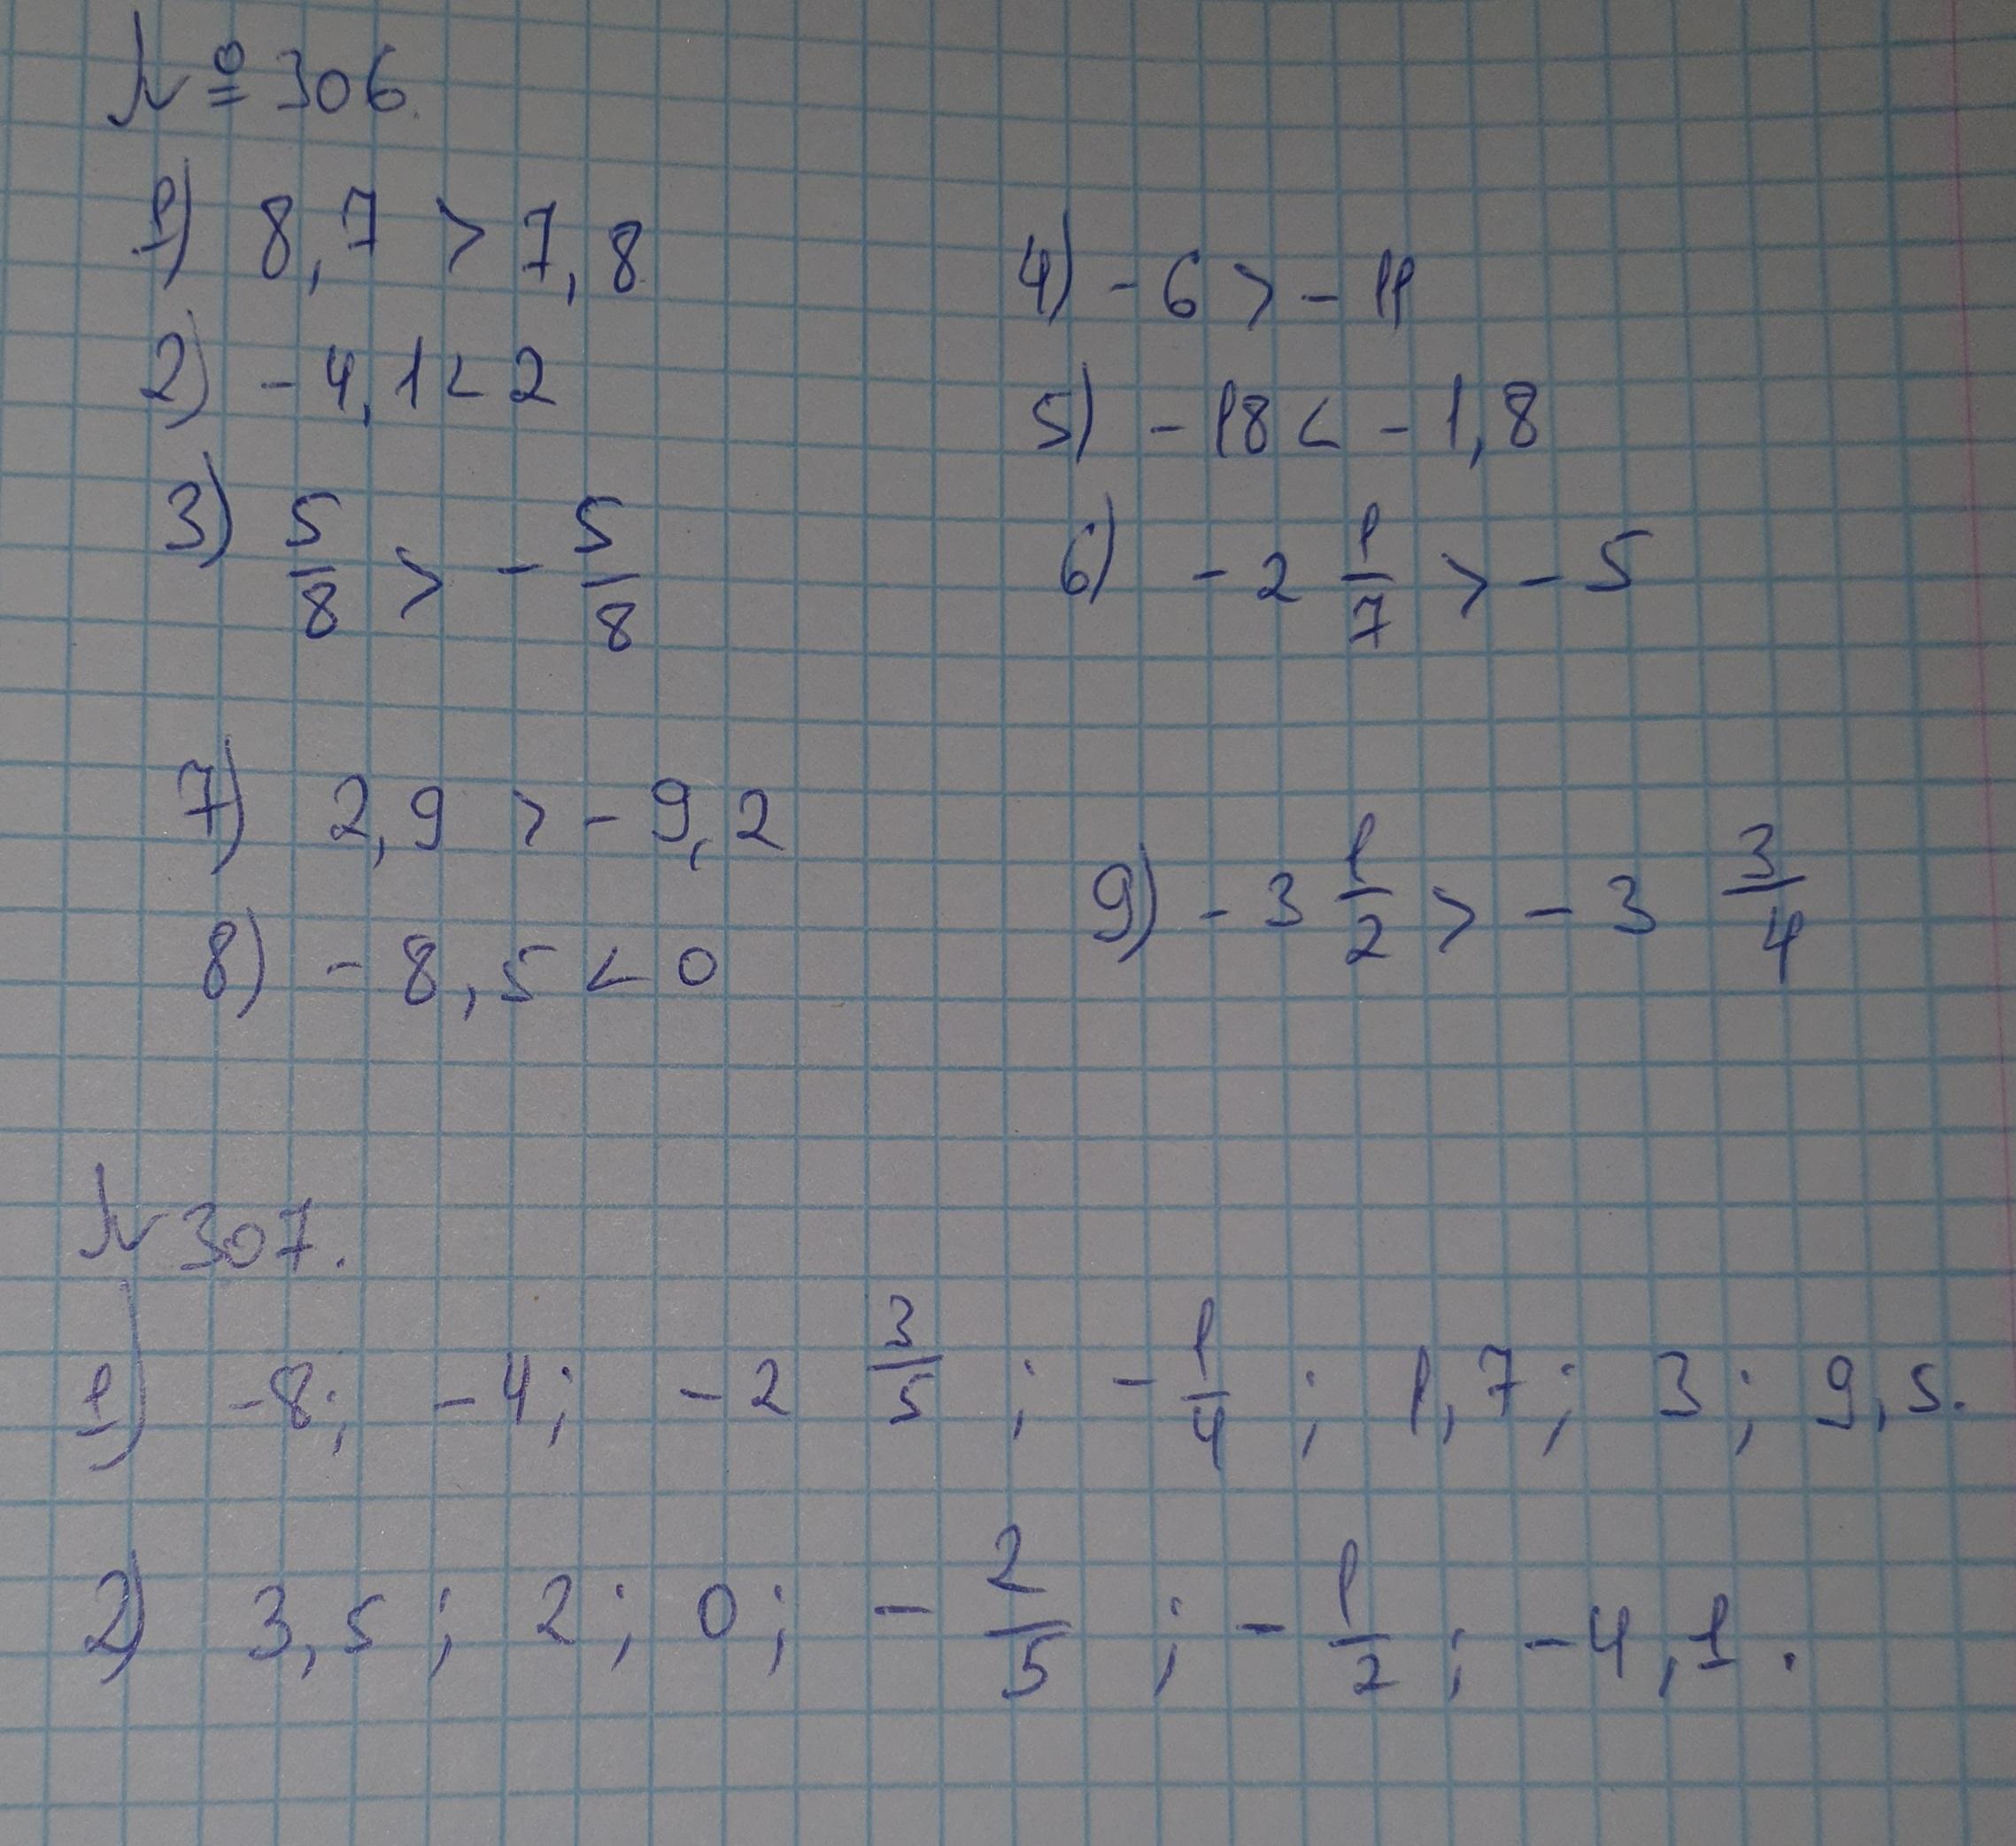 № 306.
1) 8,7 > 7,8
2) -4,1 < 2
3) 5/8 > - 5/8
4) -6 > -11
5) -18 < -1,8
6) -2 1/7 > -5
7) 2,9 > -9,2
8) -8,5 < 0
9) -3 1/2 > -3 3/4
N 307.
1) -8; -4; -2 3/5; -1/4; 1,7; 3; 9,5.
2) 3,5; 2; 0; -2/5; -1/2; -4,1.